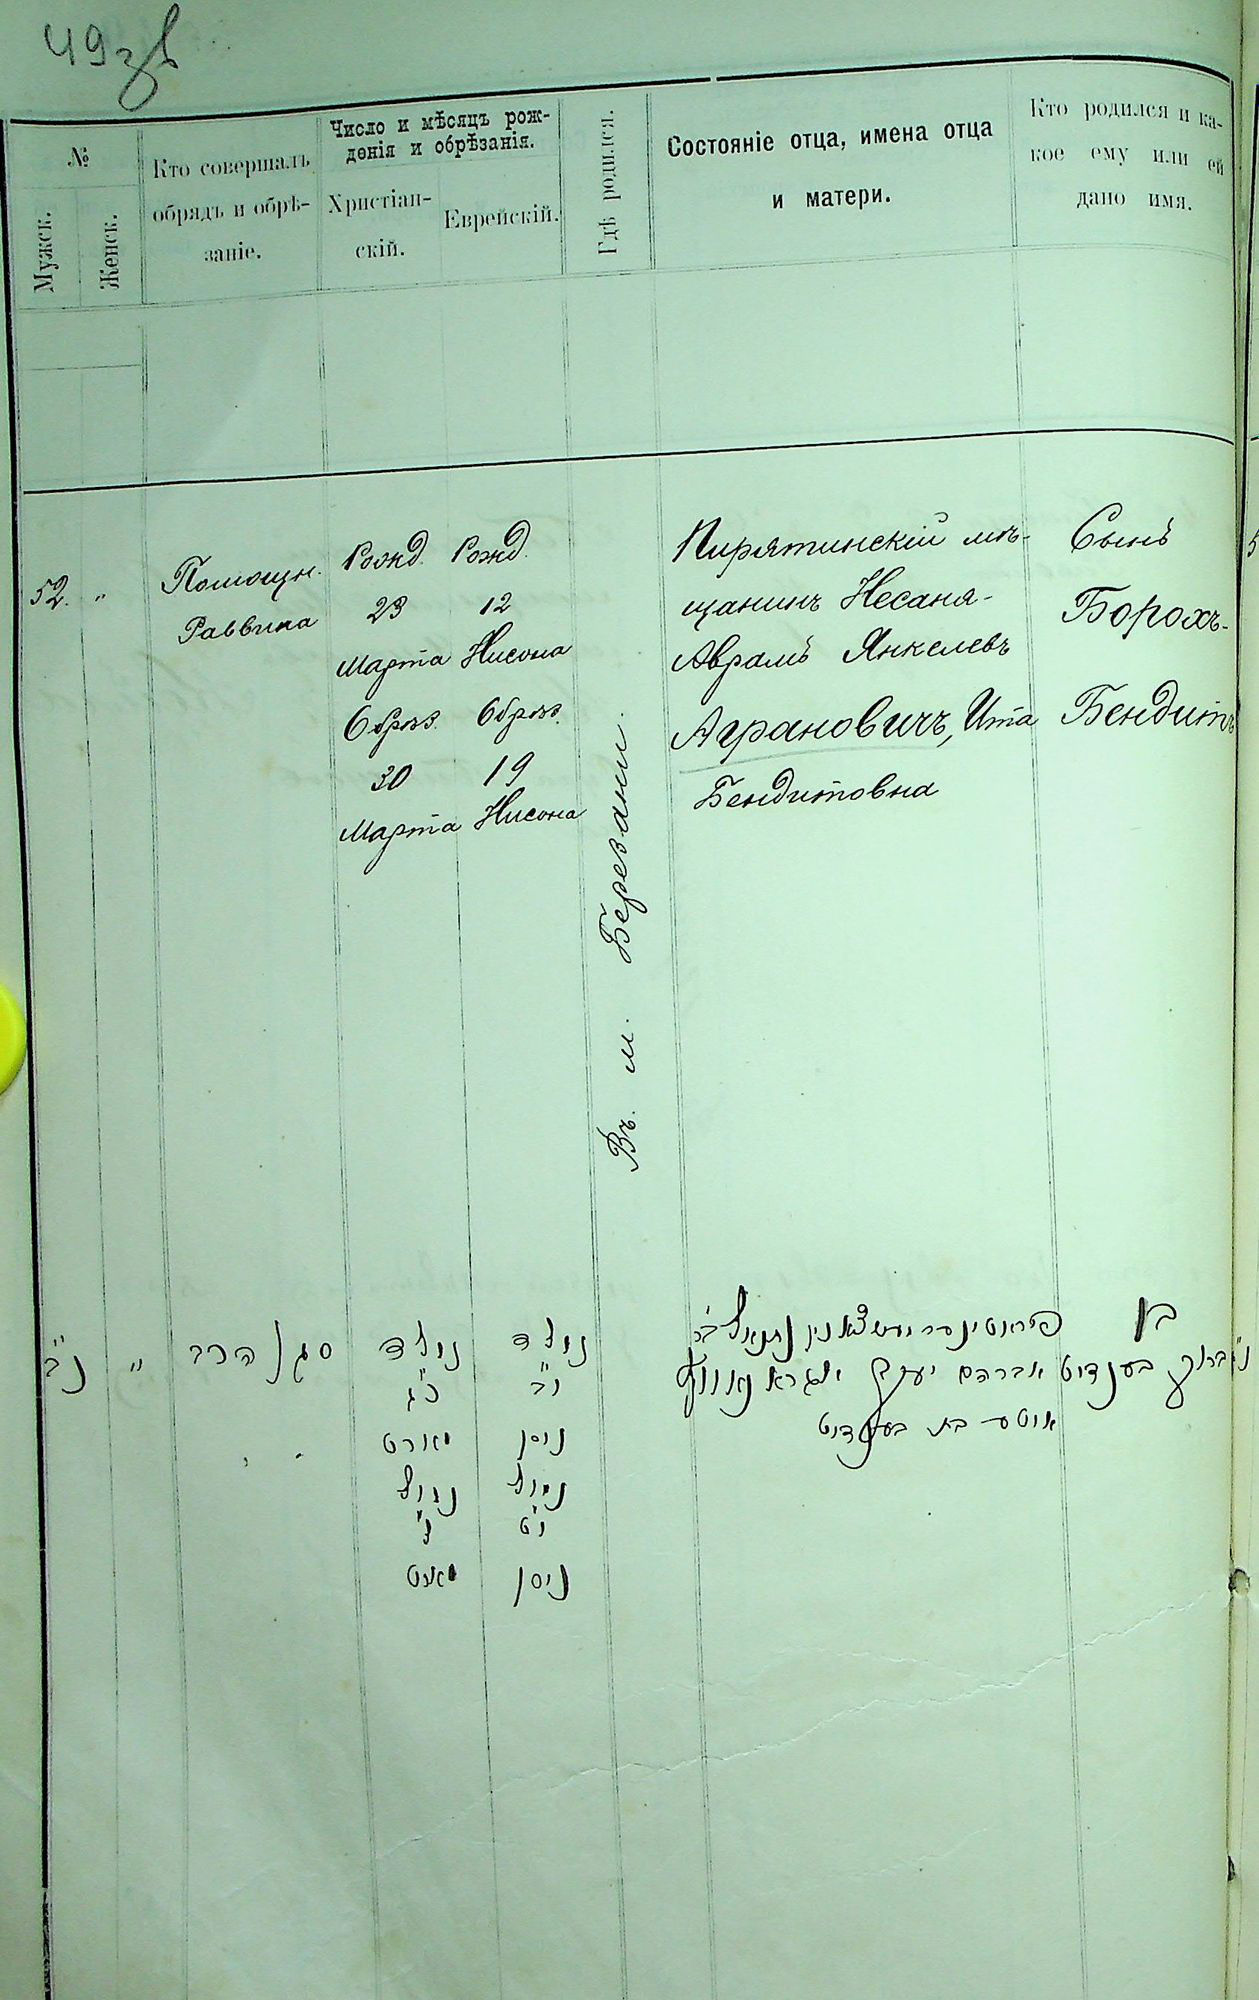 49 зв
№
Мужск.
Женск.
Кто совершалъ
обрядъ и обрѣ-
заніе.
Число и мѣсяцъ рож-
денія и обрѣзанія.
Христіан-
скій.
Еврейскій.
Гдѣ родился.
Состояніе отца, имена отца
и матери.
Кто родился и ка-
кое ему или ей
дано имя.
52. „
Помощн.
Раввина
Рожд.
23
Марта
Обрѣз.
30
Марта
Рожд.
12
Нисона
Обрѣз.
19
Нисона
Въ м. Березани.
Пирятинскій мѣ-
щанинъ Несаня-
Аврамъ Янкелевъ
Аграновичъ, Ита
Бендитовна
Сынъ
Борохъ-
Бендитъ
נ״ב „
סגן הרב
נולד
כ״ג
מארט
נמול
ל׳
מארט
נולד
י״ב
ניסן
נמול
י״ט
ניסן
נתנאל ב״ר
אברהם יעקב
בת בענדיט
בן
ברוך בענדיט